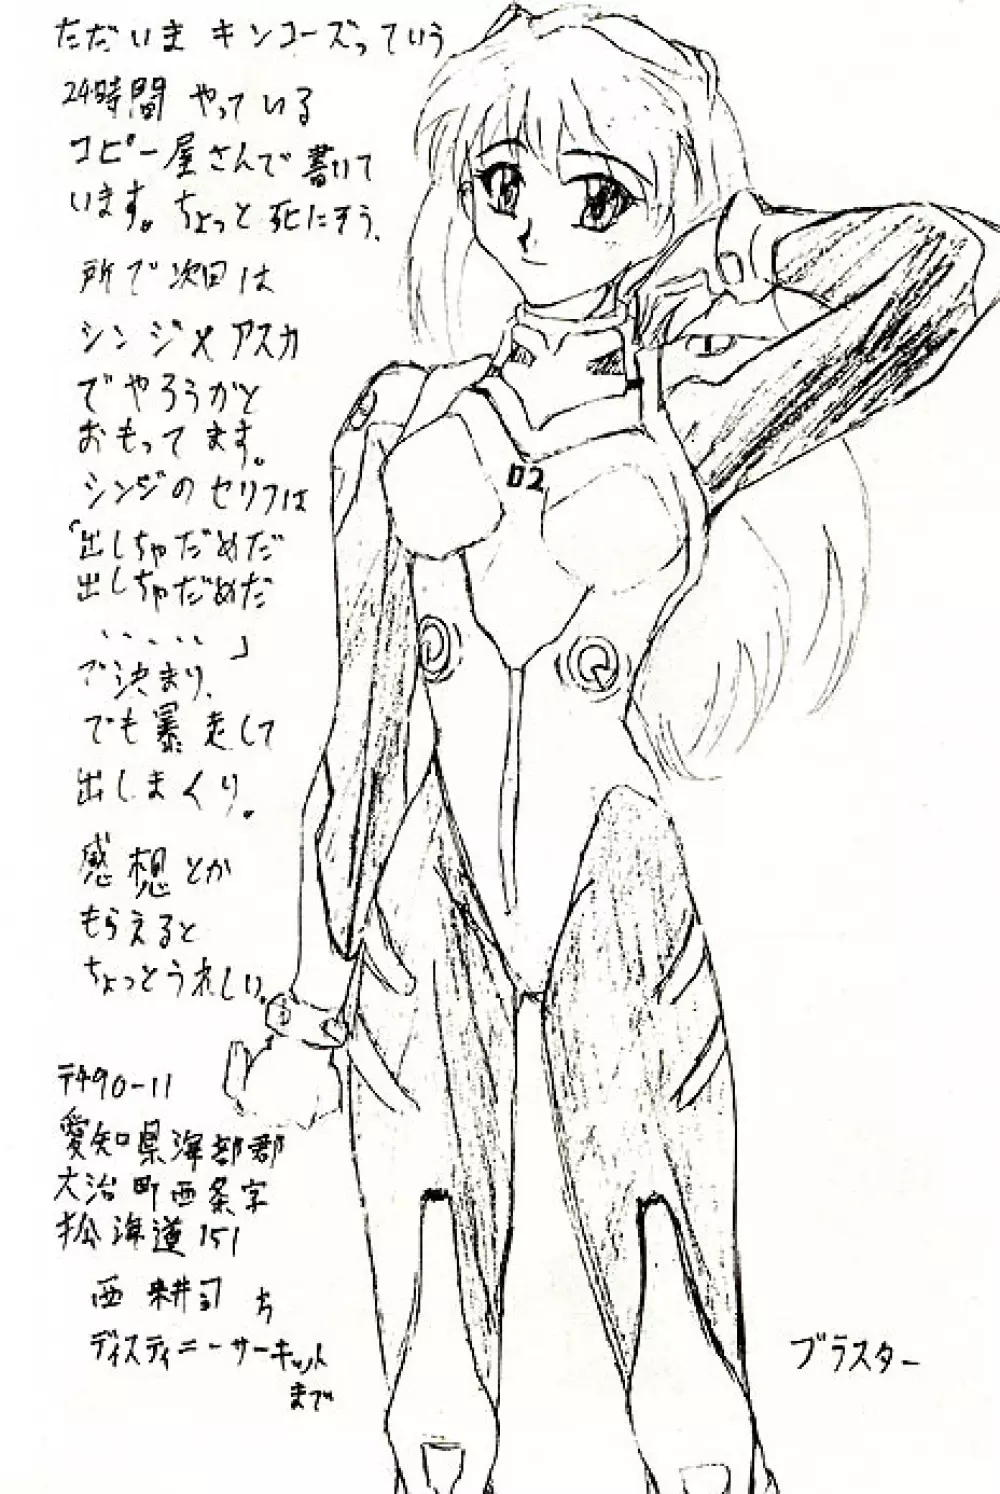 ただいま キンコーズっていう
24時間 やっている
コピー屋さんで書いて
います。ちょっと死にそう、
所で次回は
シンジ×アスカ
でやろうかと
おもってます。
シンジのセリフは
「出しちゃだめだ
出しちゃだめだ
、、、、、」
で決まり、
でも暴走して
出しまくり。
感想とか
もらえると
ちょっとうれしい。
02
〒490-11
愛知県海部郡
大治町西条字
松海道151
西耕司 方
ディスティニーサーキット
まで
ブラスター